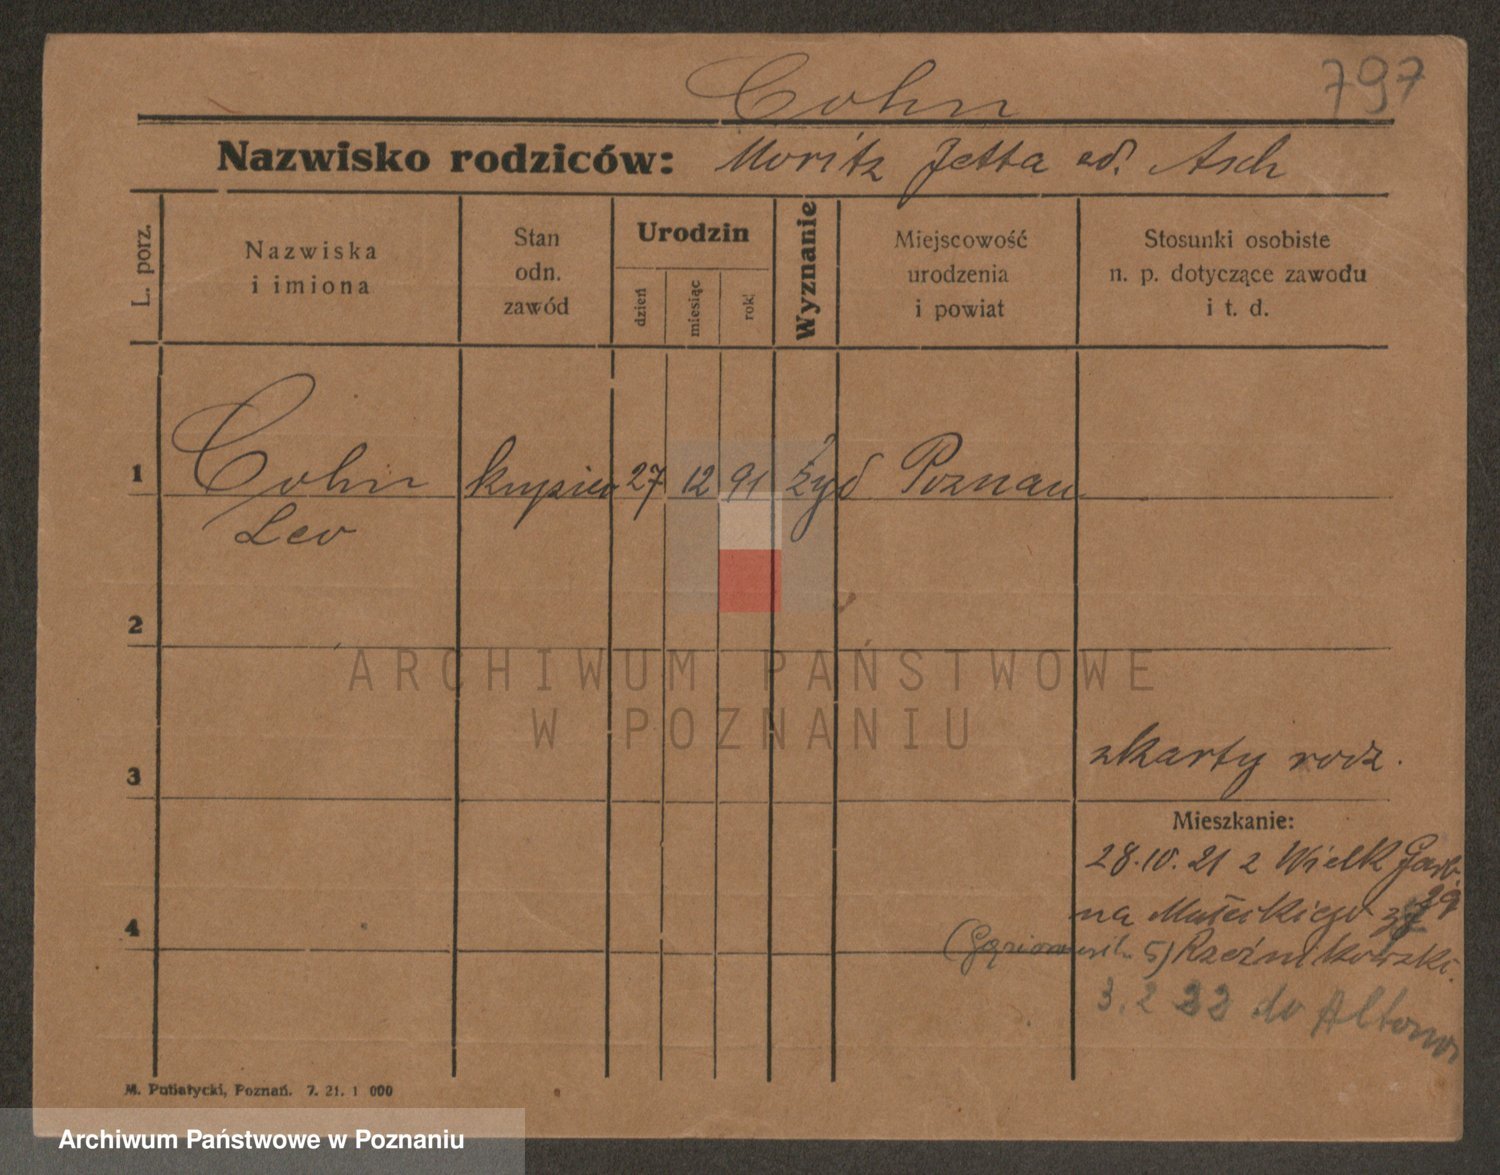 797
Cohn
Nazwisko rodziców: Moritz Jetta od. Asch
L. porz.
Nazwiska
i imiona
Stan
odn.
zawód
Urodzin
dzień
miesiąc
rok
Wyznanie
Miejscowość
urodzenia
i powiat
Stosunki osobiste
n. p. dotyczące zawodu
i t. d.
1 Cohn kupiec 27 12 91 Żyd Poznan
Leo
2
ARCHIWUM PAŃSTWOWE
W POZNANIU
z karty rodz.
3
Mieszkanie:
28.10.21 z Wielk Garb.
29
na Małeckiego
4
5)
3. 2 22 do Altona
M. Putiatycki, Poznań. 7. 21. 1 000
Archiwum Państwowe w Poznaniu